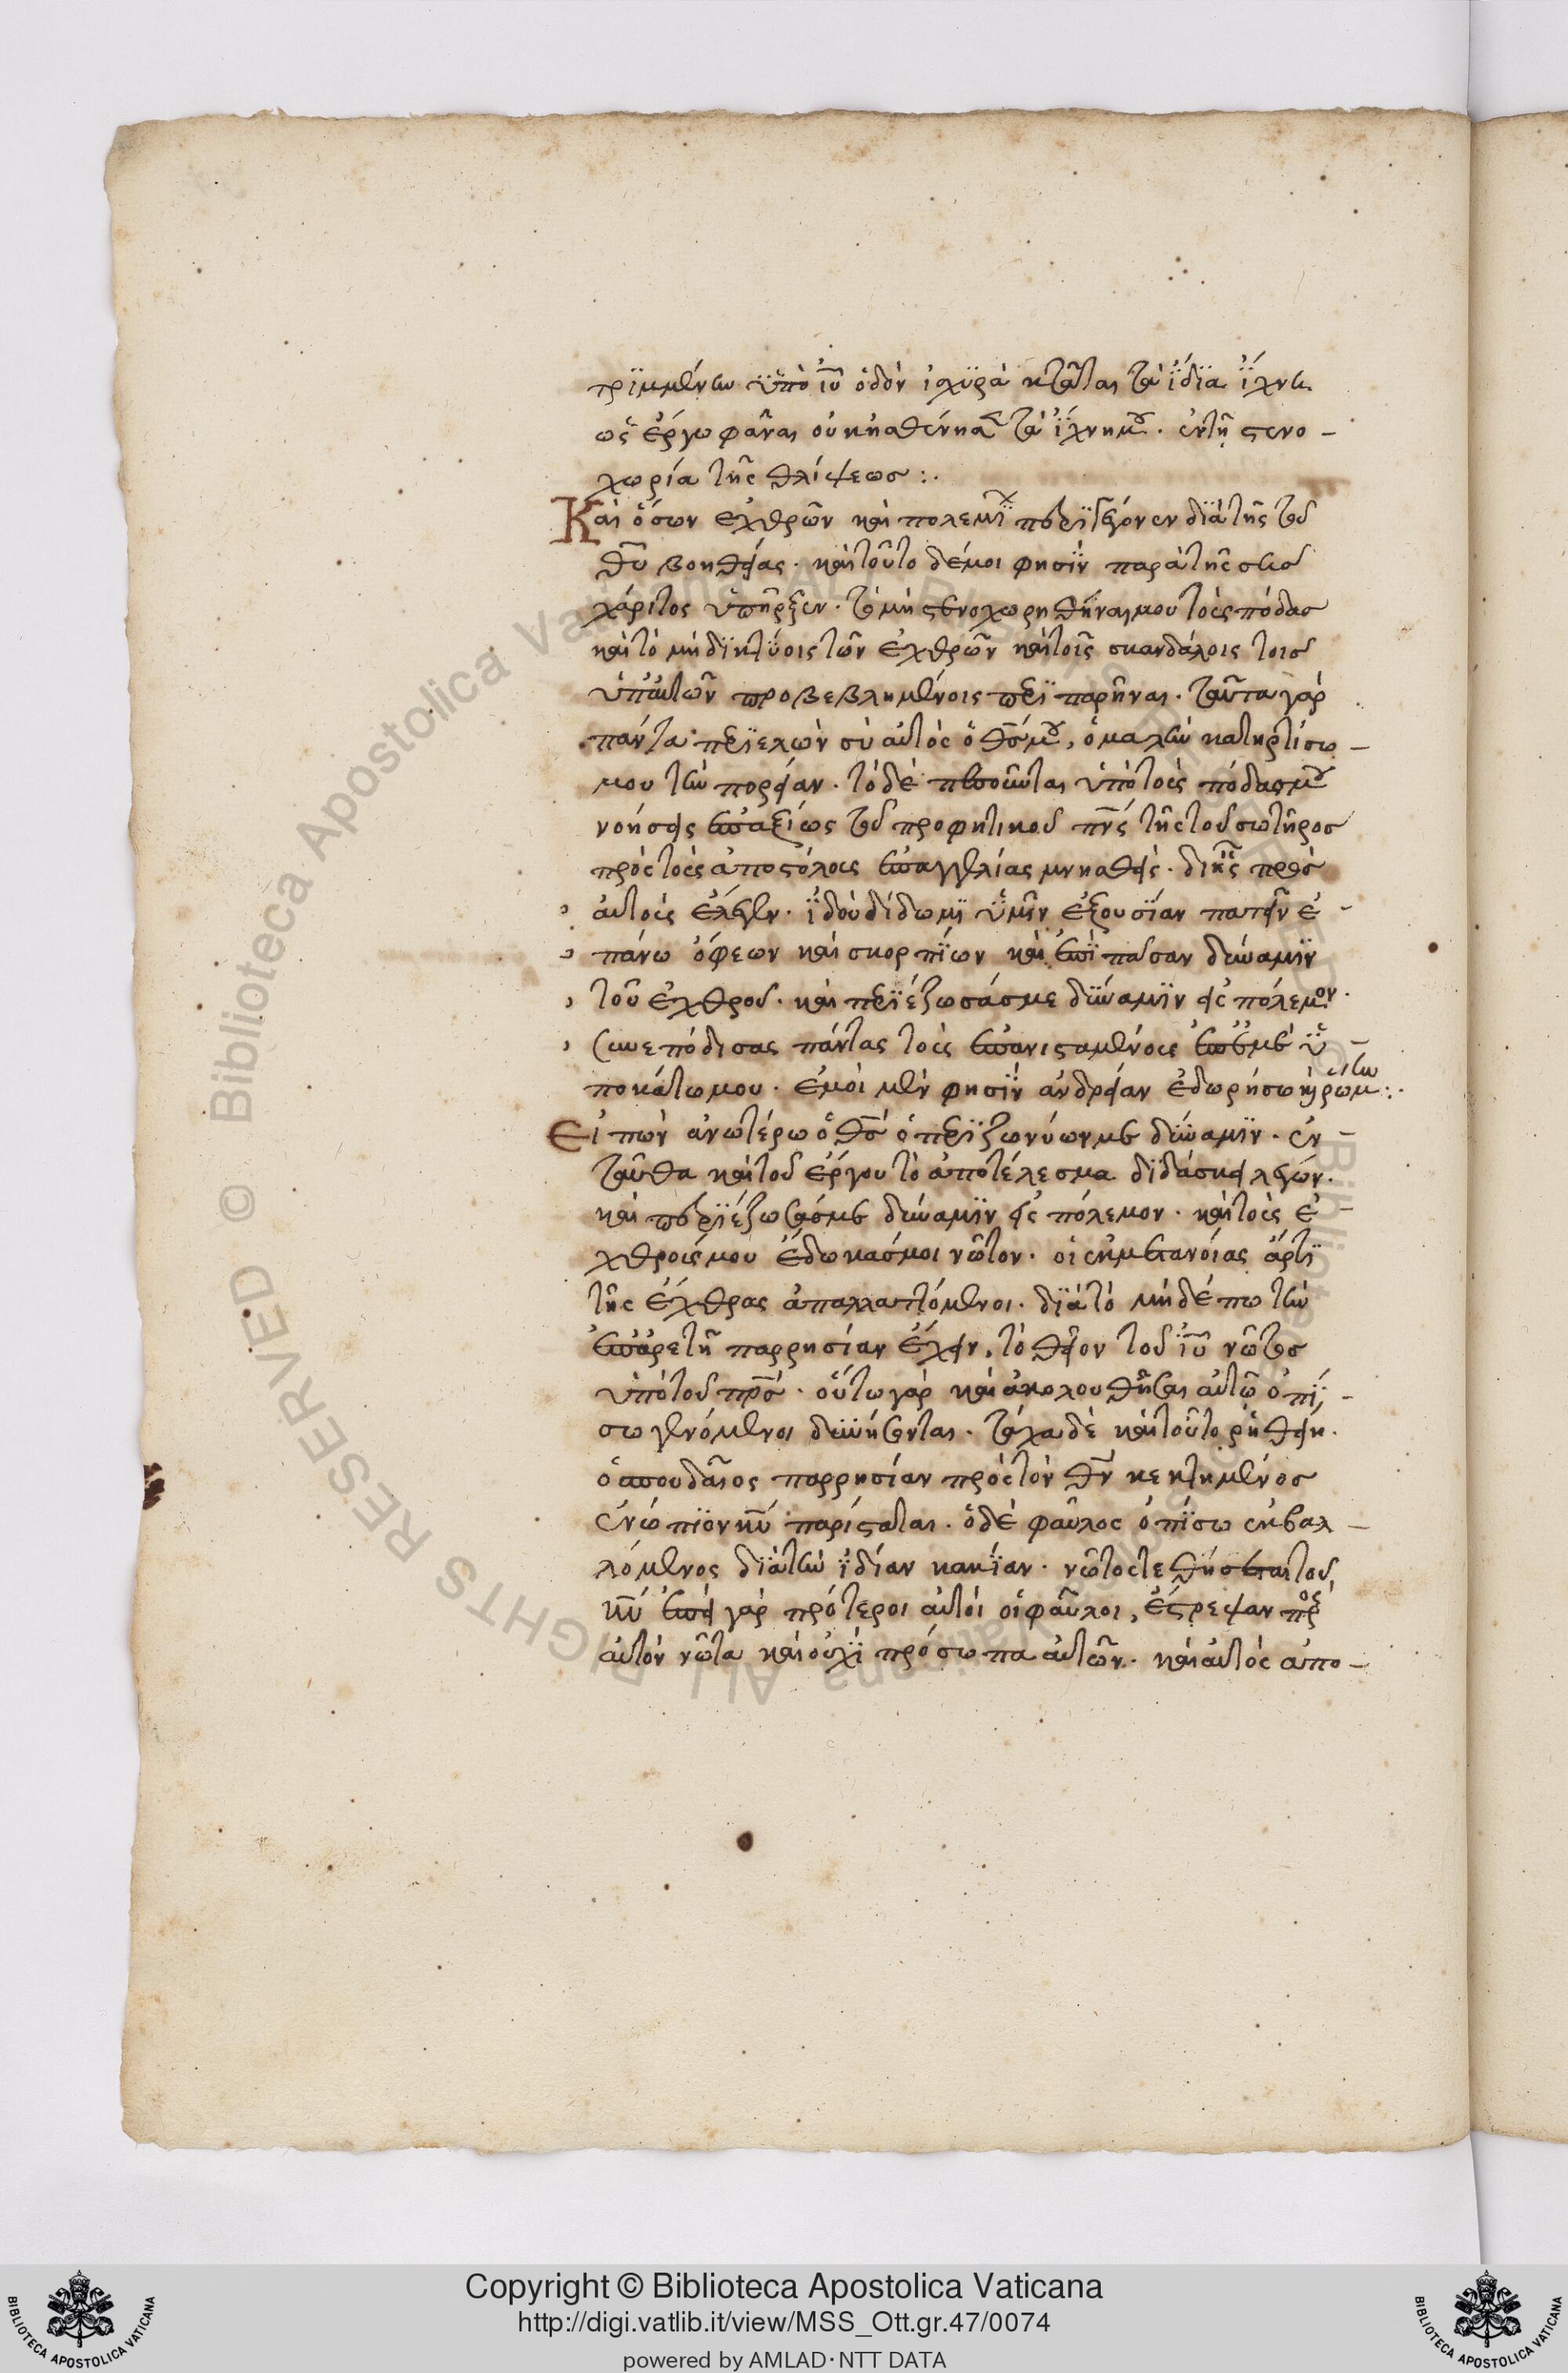 τριμμένην ὑπὸ ἰῡ ὁδὸν ἰσχυρὰ κτᾶται τὰ ἴδια ἴχνη
ὡς ἔργω φᾶναι οὐκ ἠσθένησ τὰ ἴχνη μου. ἐν τῆ στενο-
χωρία τῆς θλίψεως:.
Καὶ ὅσων ἐχθρῶν καὶ πολεμί περιγέγονεν διὰ τῆς τοῦ
θῡ βοηθείας. καὶ τοῦτο δέ μοι φησὶν παρὰ τῆς σῆς
χάριτος ὑπῆρξεν. τὸ μὴ στενοχωρηθῆναι μου τοὺς πόδας
καὶ τὸ μὴ δικτύοις τῶν ἐχθρῶν καὶ τοῖς σκανδάλοις τοῖς
ὑπ' αὐτῶν προβεβλημένοις περιπαρῆναι. ταῦτα γὰρ
πάντα περιελὼν σὺ αὐτὸς ὁ θσ̄ μου, ὁμαλὴν κατηρτίσω
μου τὴν πορείαν. τὸ δὲ πεσοῦνται ὑπὸ τοὺς πόδας μου
νοήσεις ἐπαξίως τοῦ προφητικοῦ πνς̄ τῆς τοῦ σωτῆρος
πρὸς τοὺς ἀποστόλους ἐπαγγελίας μνησθείς. δι' ἧς πρὸς
αὐτοὺς ἔλεγεν. ἰδοὺ δίδωμι ὑμῖν ἐξουσίαν πατεῖν ἐ-
πάνω ὄφεων καὶ σκορπίων καὶ ἐπὶ πᾶσαν δύναμιν
τοῦ ἐχθροῦ. καὶ περιέζωσάς με δύναμιν εἰς πόλεμον.
συνεπόδισας πάντας τοὺς ἐπανισταμένους ἐπ' ἐμὲ ὑ-
ποκάτω μου. ἐμοὶ μὲν φησὶν ἀνδρείαν ἐδωρήσω καὶ ρώμ
Εἰπὼν ἀνωτέρω ὁ θσ̄ ὁ περιζωνύων με δύναμιν. ἐν-
ταῦθα καὶ τοῦ ἔργου τὸ ἀποτέλεσμα διδάσκει λέγων.
καὶ περιέζωσάς με δύναμιν εἰς πόλεμον. καὶ τοὺς ἐ-
χθρούς μου ἔδωκάς μοι νῶτον. οἱ ἐκ μετανοίας ἄρτι
τῆς ἔχθρας ἀπαλλαττόμενοι. διὰ τὸ μηδέπω τὴν
ἐπ' ἀρετῆ παρρησίαν ἔχειν, τὸ θεῖον τοῦ ἰῡ νῶτος
ὑπὸ τοῦ πρσ̄. οὕτω γὰρ καὶ ἀκολουθῆσαι αὐτῶ ὀπί-
σω γενόμενοι δυνήσονται. τάχα δὲ καὶ τοῦτο ρηθείη.
ὁ σπουδαῖος παρρησίαν πρὸς τὸν θν̄ κεκτημένος
ἐνώπιον κῡ παρίσταται. ὁ δὲ φαῦλος ὀπίσω ἐκβαλ-
λόμενος διὰ τὴν ἰδίαν κακίαν. νῶτος τεθήσεται τοῦ
κῡ ἐπεὶ γὰρ πρότεροι αὐτοὶ οἱ φαῦλοι, ἔστρεψαν πρὸς
αὐτὸν νῶτα καὶ οὐχὶ πρόσωπα αὐτῶν. καὶ αὐτὸς ἀπο-
Copyright © Biblioteca Apostolica Vaticana
http://digi.vatlib.it/view/MSS_Ott.gr.47/0074
powered by AMLAD·NTT DATA